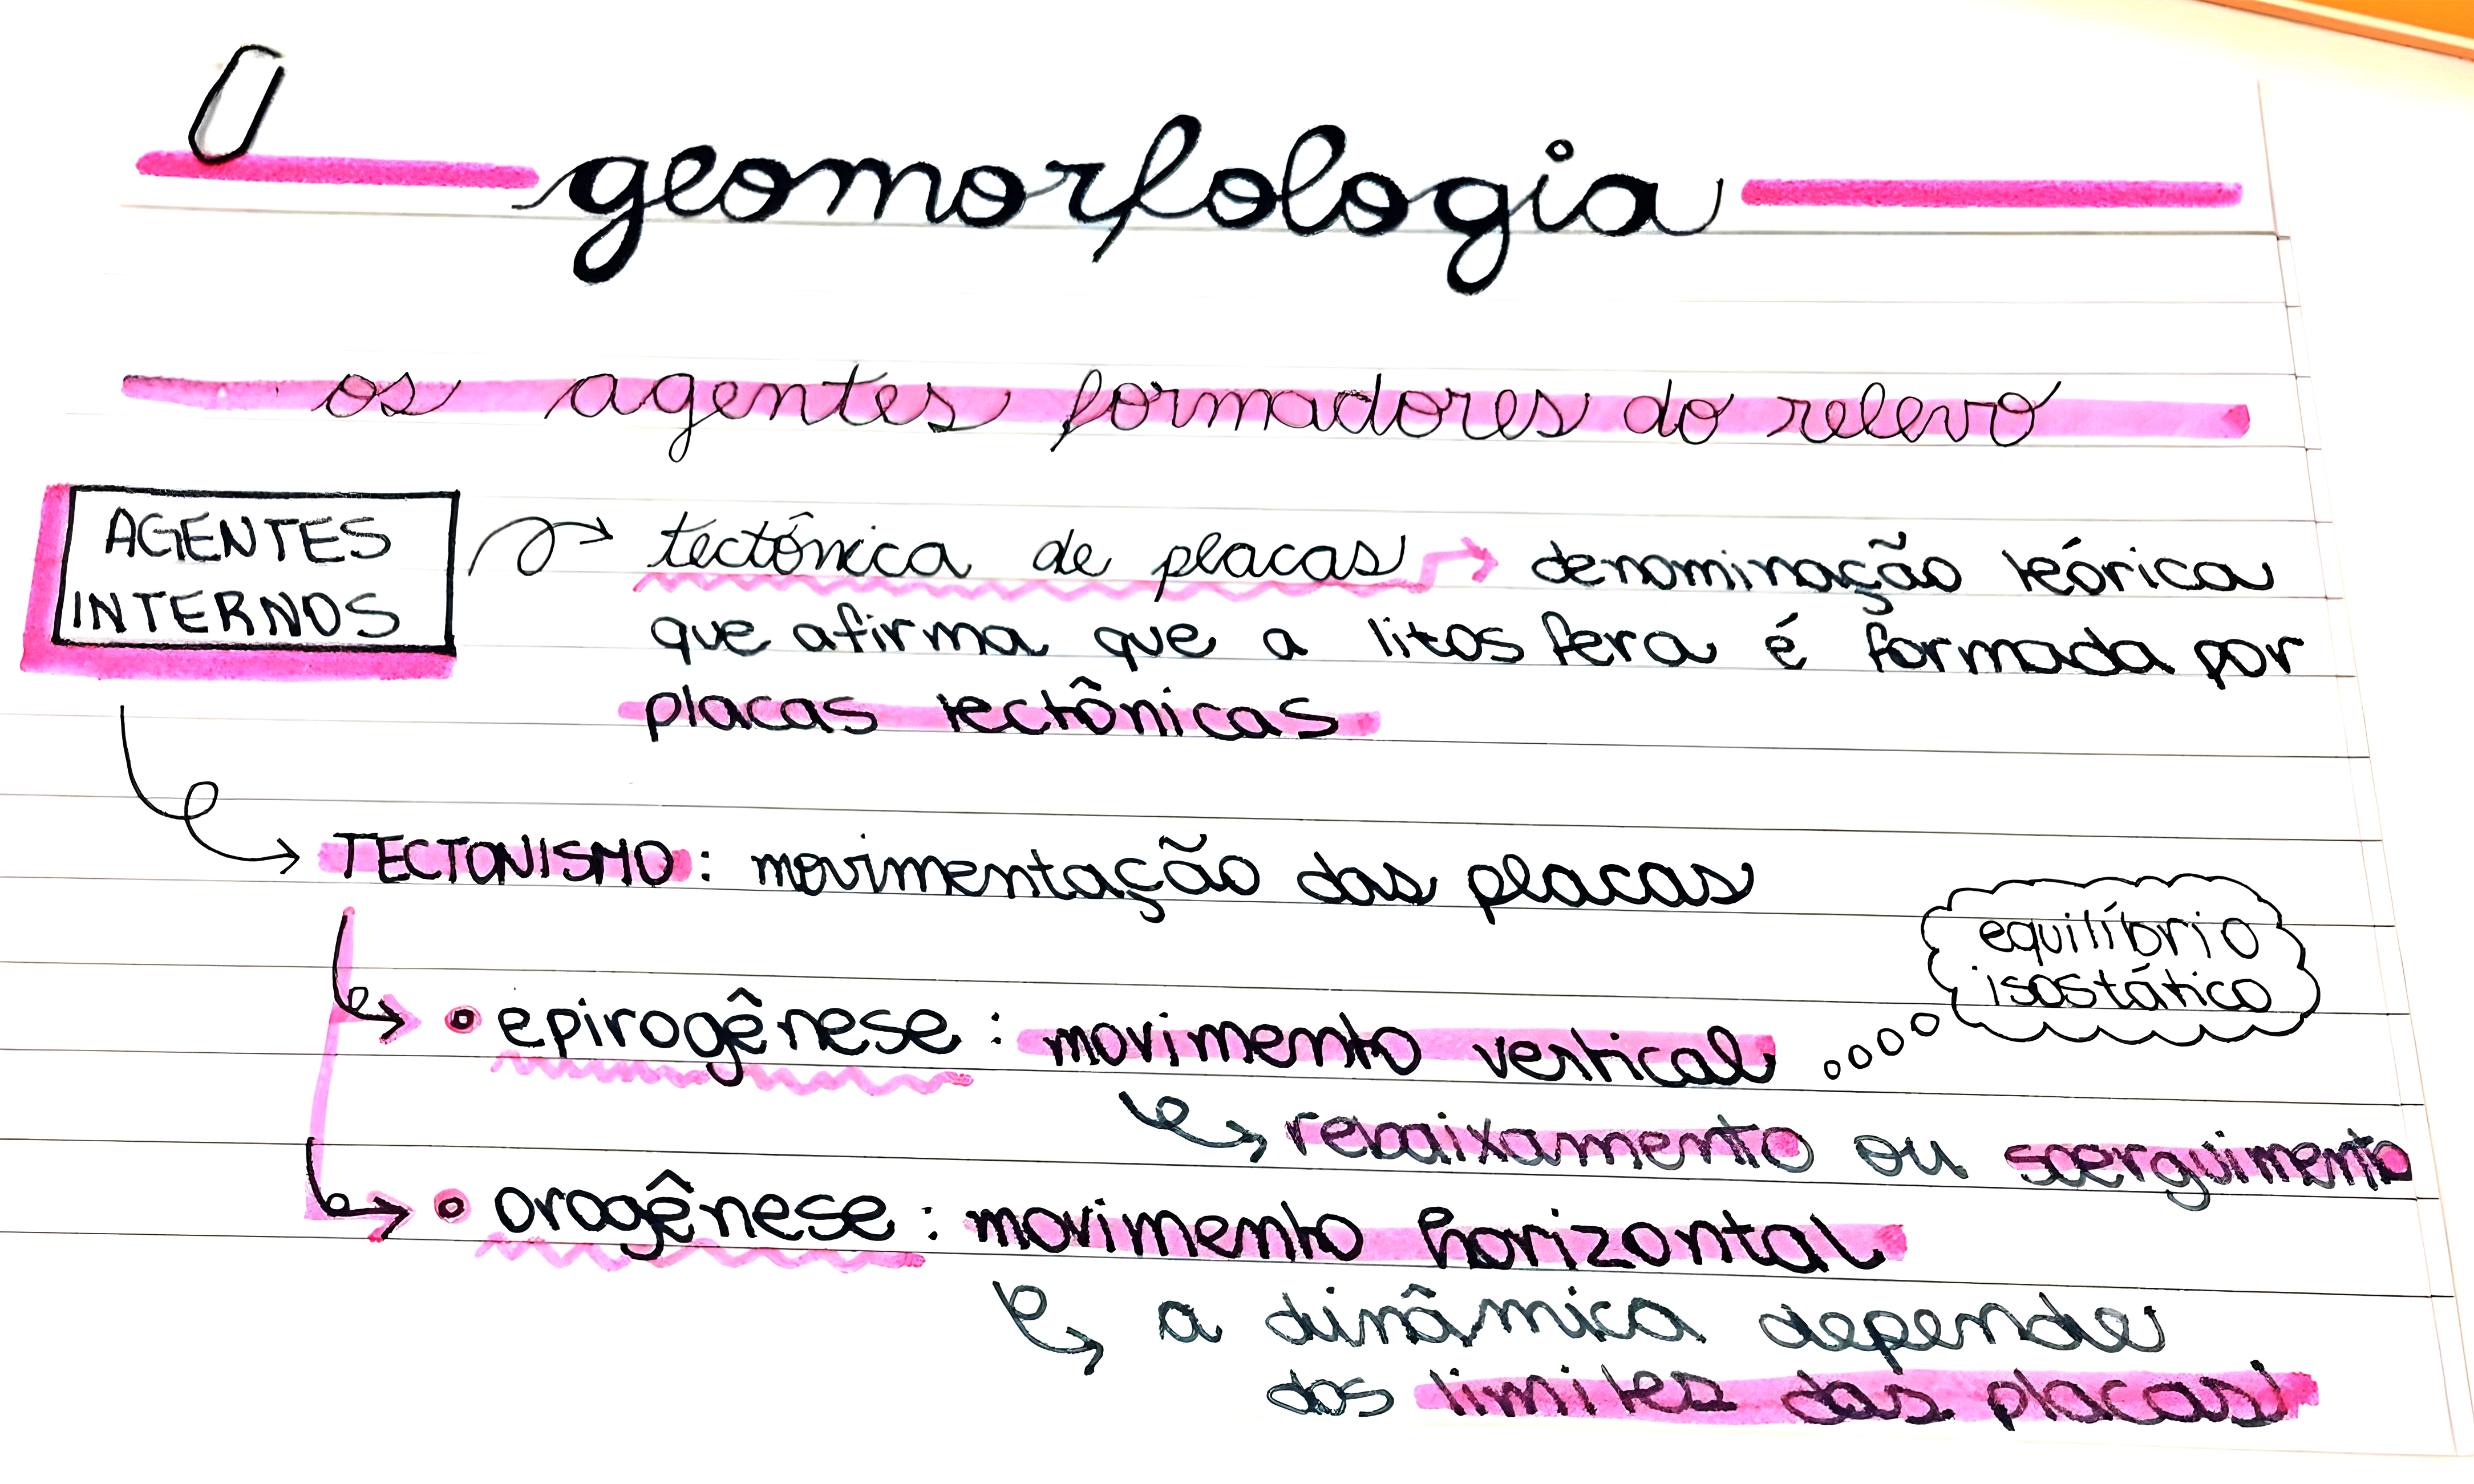 geomorfologia
os agentes formadores do relevo
AGENTES
INTERNOS
tectônica de placas → denominação teórica
que afirma que a litosfera é formada por
placas tectônicas
TECTONISMO: movimentação das placas
equilíbrio
isostático
epirogênese: movimento vertical
rebaixamento ou soerguimento
orogênese: movimento horizontal
a dinâmica depende
dos limites das placas!